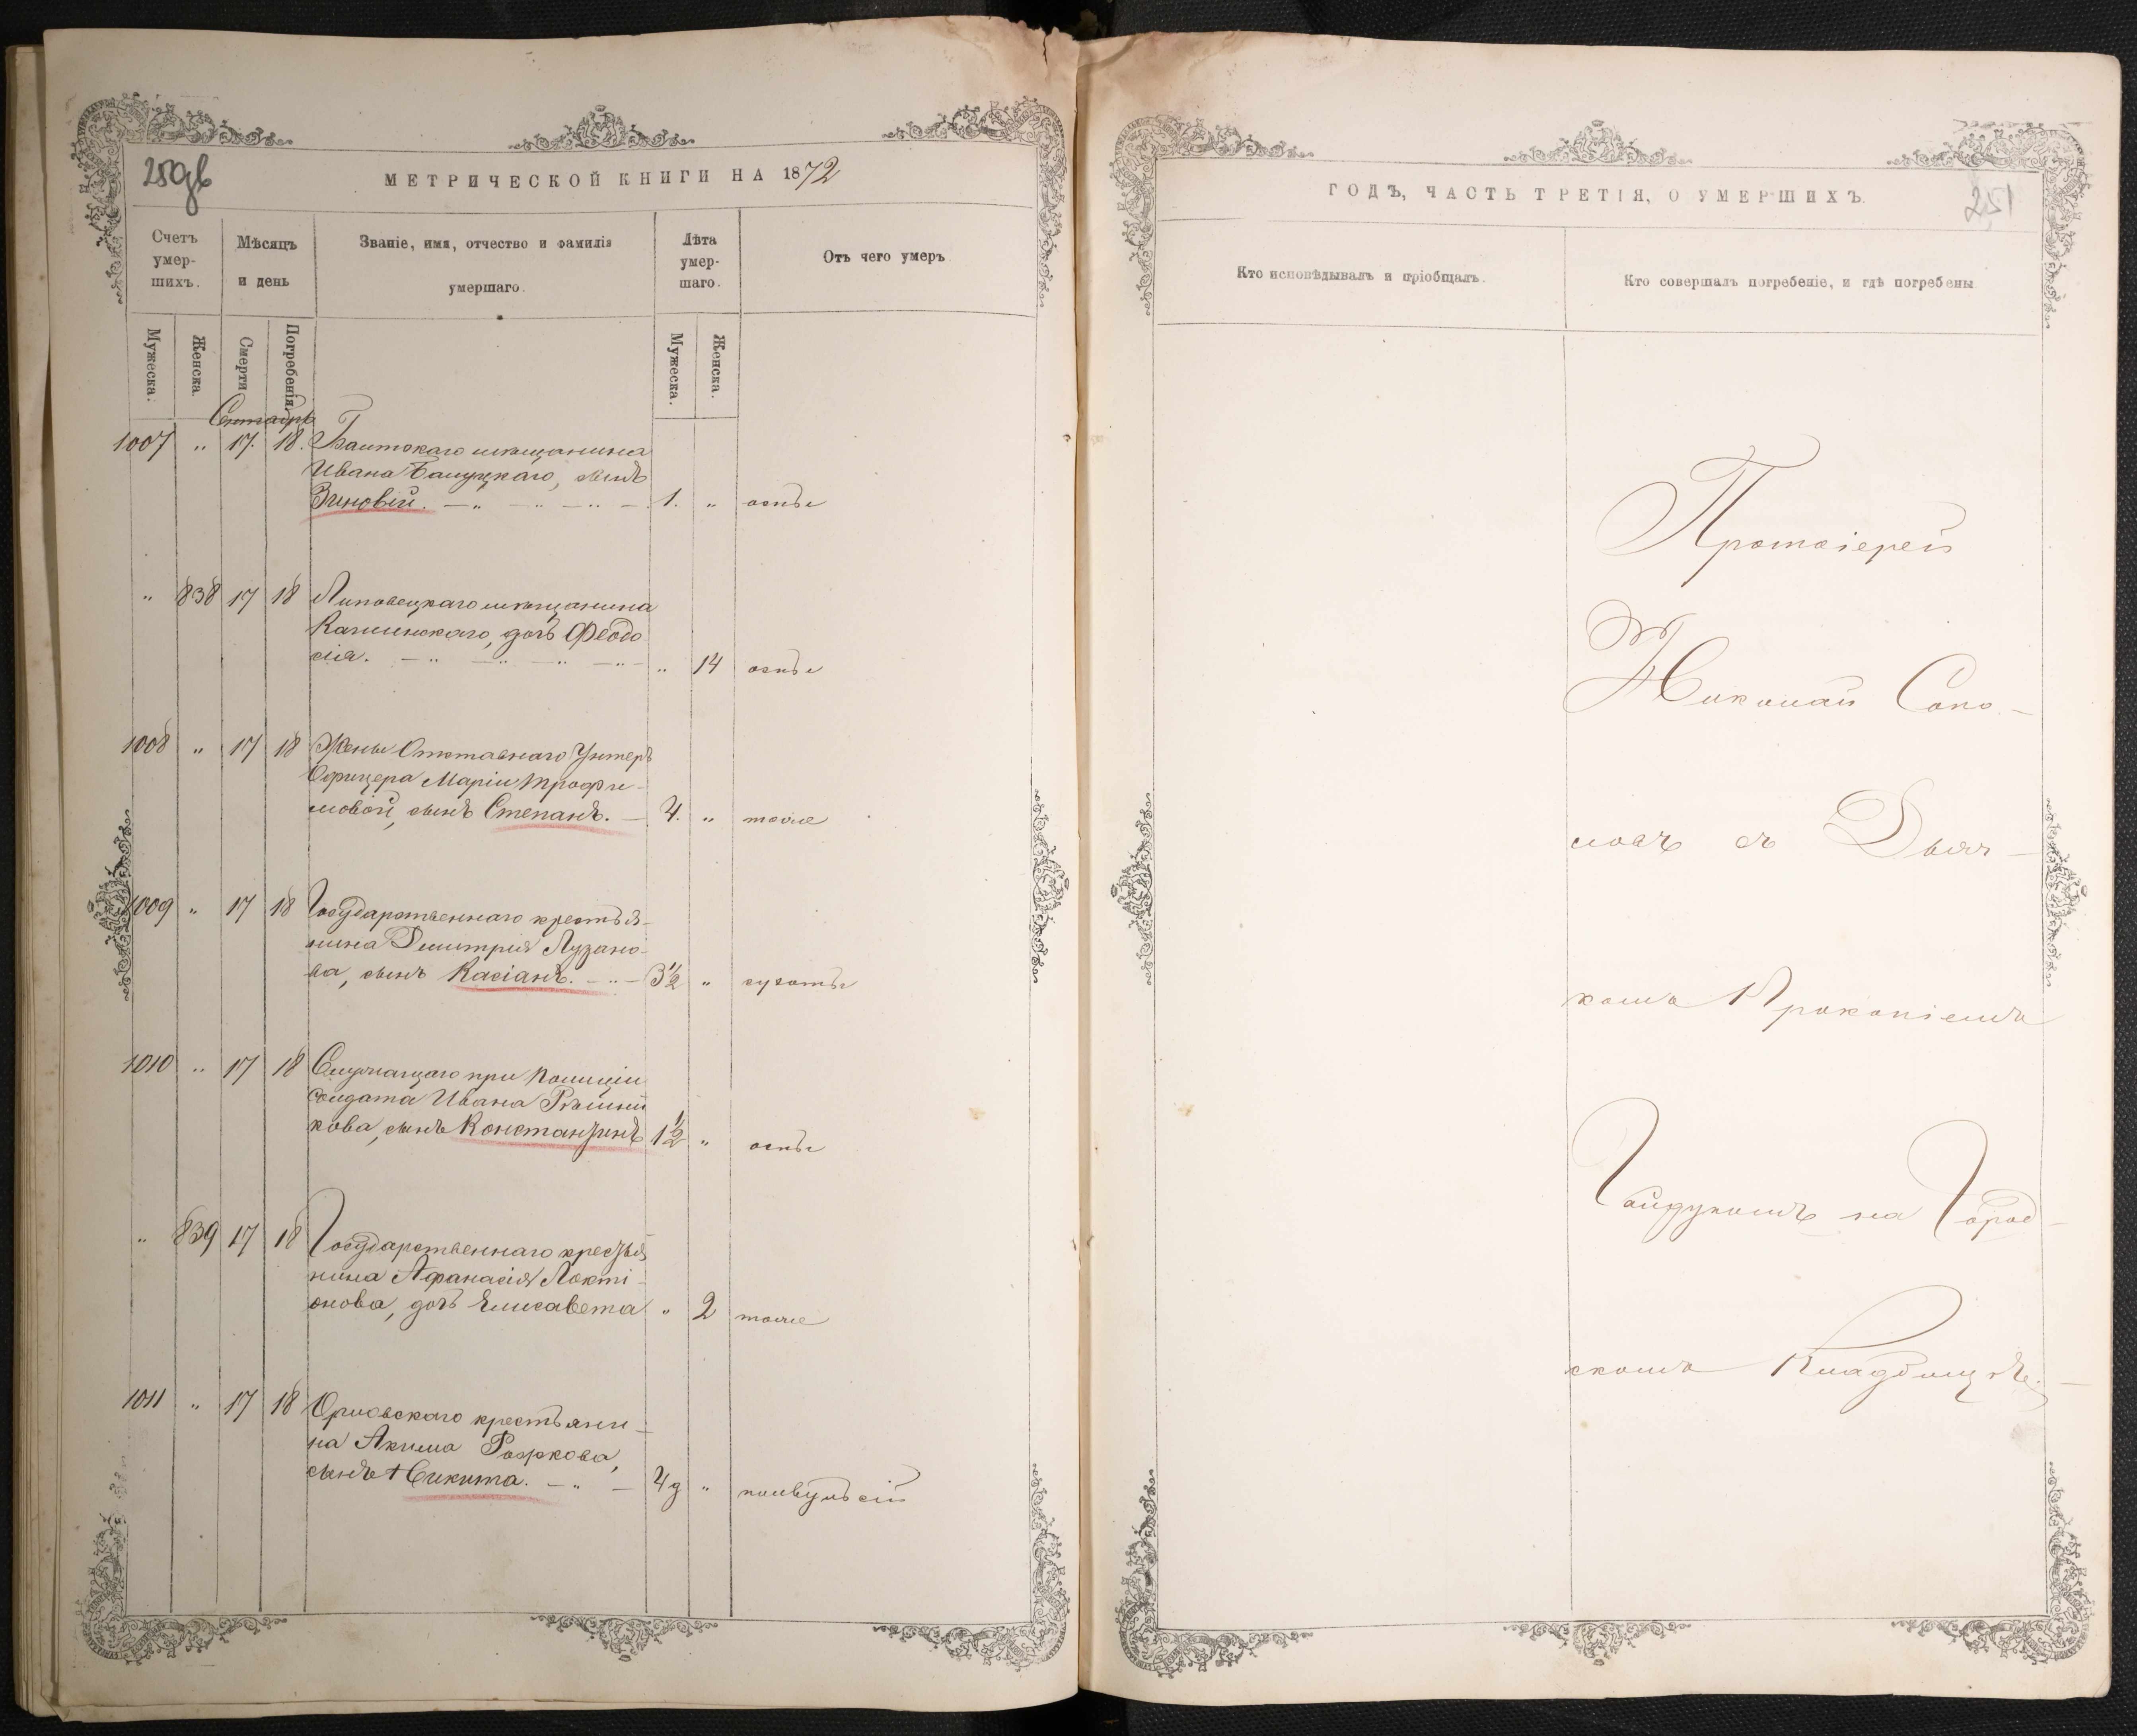 250об
МЕТРИЧЕСКОЙ КНИГИ НА 1872
Счетъ умер-шихъ.
Мѣсяцъ и день
Званіе, имя, отчество и фамилія умершаго.
Лѣта умер-шаго.
Отъ чего умеръ
Мужеска.
Женска.
Смерти
Погребенія.
Мужеска.
Женска.
Сентябрь
1007 " 17. 18. Балтскаго мѣщанина
Ивана Балуцкаго, сынъ
Зиновій. — " — " — " — 1. " оспы
" 838 17 18 Липовецкаго мѣщанина
Каминскаго, дочь Феодо
сія. — " — " — " — " — " 14 оспы
1008 " 17 18 Жены Отставнаго Унтеръ
Офицера Маріи Трофи-
мовой, сынъ Степанъ. — 4. " тоже
1009 " 17 18 Государственнаго крестья-
нина Димитрія Лузано-
ва, сынъ Касіанъ. — " — 3½ " сухоты
1010 " 17 18 Служащаго при Полиціи
солдата Ивана Рѣшни
кова, сынъ Константинъ 1½ " оспы
" 839 17 18 Государственнаго крестья
нина Афанасія Локті-
онова, дочь Елисавета " 2 тоже
1011 " 17 18 Орловскаго крестьяни-
на Акима Рожкова,
сынъ Никита. — " — 4д " конвульсій
ГОДЪ, ЧАСТЬ ТРЕТІЯ, О УМЕРШИХЪ.
251
Кто исповѣдывалъ и пріобщалъ.
Кто совершалъ погребеніе, и гдѣ погребены
Протоіерей
Николай Соко-
ловъ съ Дьяч-
комъ Прокопіемъ
Гайдукомъ на Город-
скомъ Кладбищѣ.